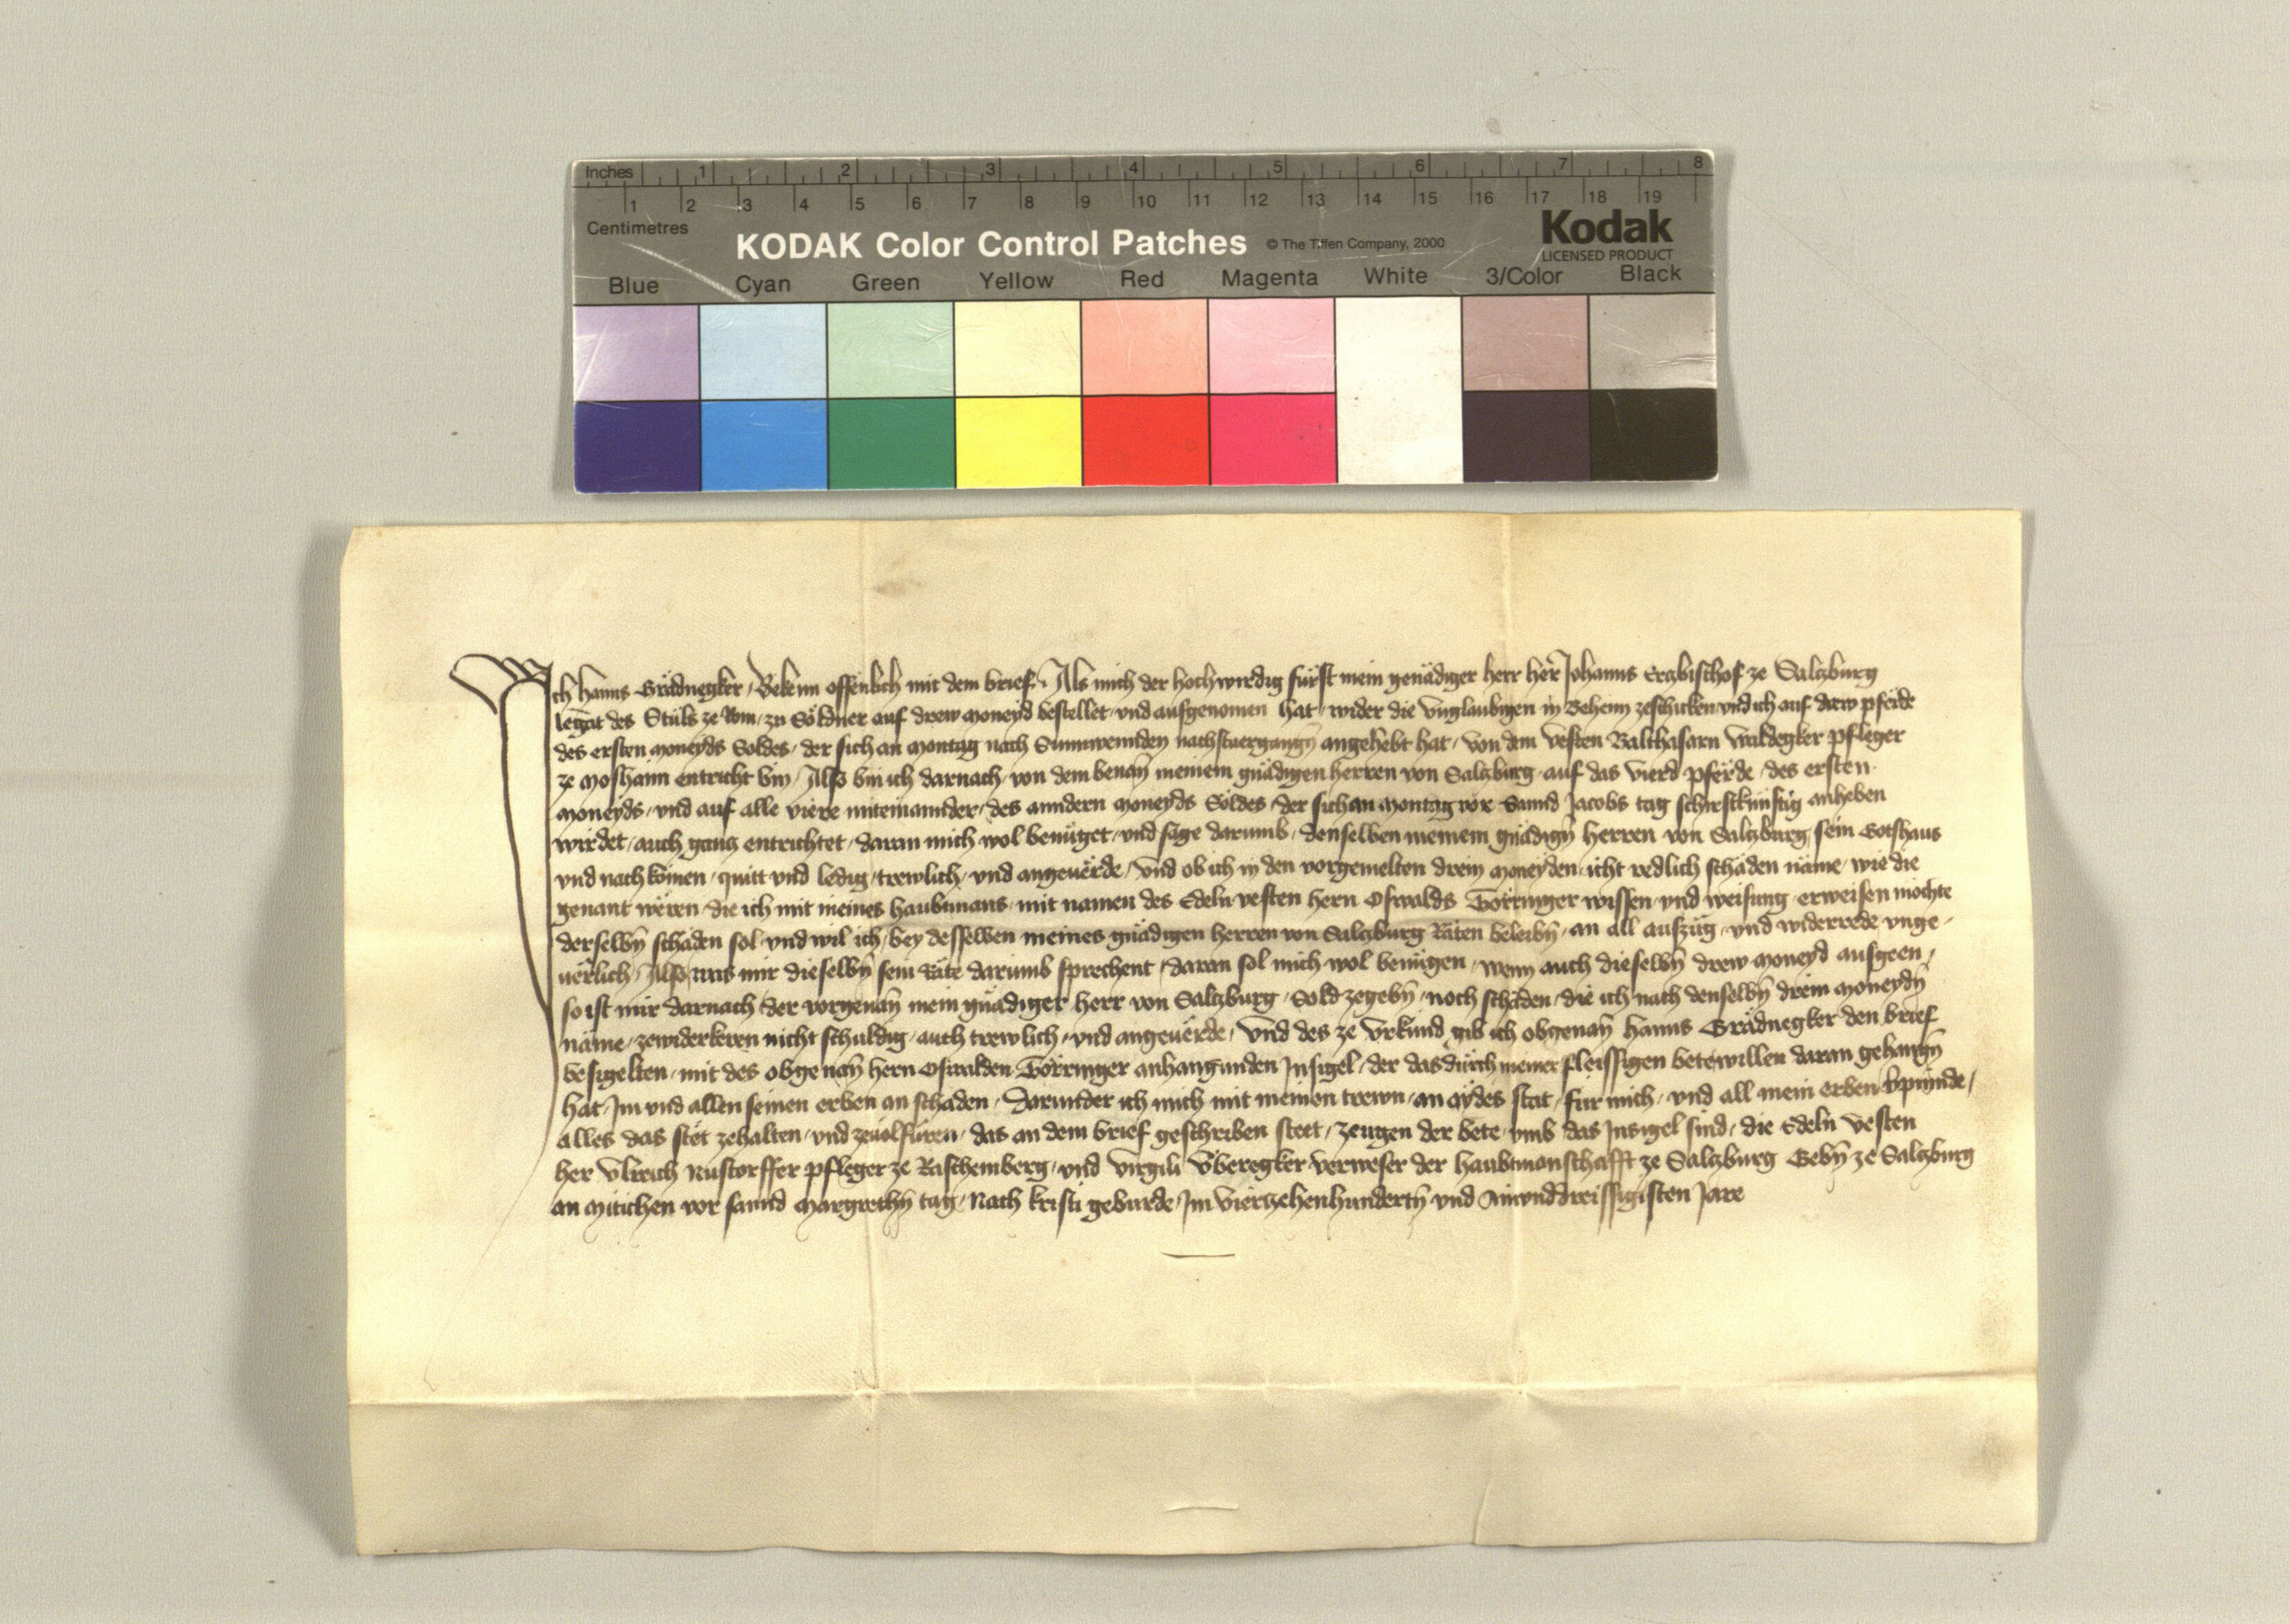 Inches 1 2 3 4 5 6 7 8
1 2 3 4 5 6 7 8 9 10 11 12 13 14 15 16 17 18 19
Centimetres
KODAK Color Control Patches © The Tiffen Company, 2000 Kodak
LICENSED PRODUCT
Blue Cyan Green Yellow Red Magenta White 3/Color Black
Ich Hanns Grädnegker, Bekenn offenlich mit dem brief, Als mich der hochwirdig fürst mein genädiger herr her Johanns Erzbischof ze Salzburg
legat des Stüls ze Rom, zu Söldner auf drew moneyd bestellet, und aufgenomen hat, wider die Unglaubigen in Behem zeschicken und ich auf drew pferde
des ersten moneyds Soldes, der sich an montag nach Sunnwennden nachstuergangn̄ angehebt hat, von dem vesten Balthasarn Waldegker pfleger
ze Moshaim entricht bin, Also bin ich darnach, von dem benan̄ meinem gnädigen herren von Salzburg, auf das vierd pferde, des ersten
moneyds, und auf alle viere miteinannder, des anndern moneyds Soldes, der sich an montag vor Sannd Jacobs tag schirstkünftig anheben
wirdet, auch ganz entrichtet, daran mich wol benüget, und sage darumb, denselben meinem gnädign̄ herren von Salzburg, sein Gotshaus
und nachkömen, quitt und ledig, trewlich, und angeuërde, Und ob ich in den vorgemelten drein moneyden, icht redlich schäden näme, wie die
genant wëren, die ich mit meines haubtmans, mit namen des Edeln vesten hern Oswalds Törringer wissen, und weisung, erweisen möchte
derselbn̄ schäden sol, und wil ich, bey desselben meines gnädigen herren von Salzburg Räten beleibn̄, an all auszüg, und widerrede unge-
uërlich, Also, was mir dieselbn̄ sein Räte darumb sprechent, daran sol mich wol benügen, wenn auch dieselbn̄ drew moneyd ausgeen,
so ist mir darnach, der vorgenan̄ mein gnädiger herr von Salzburg, Sold zegebn̄, noch schäden, die ich nach denselbn̄ drein moneydn̄
näme, zewiderkeren nicht schuldig, auch trewlich, und angeuërde, Und des ze Urkund, gib ich obgenan̄ Hanns Grädnegker den brief
besigelten, mit des obgenan̄ hern Oswalden Törringer anhangunden Insigel, der das durch meiner fleissigen bete willen daran gehangn̄
hat, Im und allen seinen erben an schaden, Darunder ich mich mit meinen trewn, an aydes stat, für mich, und all mein erben verpinde,
alles das stët zehalten, und zeuolfüren, das an dem brief geschriben steet, Zeugen der bete, umb das Insigel sind, die Edeln Vesten
her Ulreich Nustorffer pfleger ze Raschemberg, und Virgili Überegker verweser der haubtmanschafft ze Salzburg Gebn̄ ze Salzburg
an Mitichen vor sannd Margrethn̄ tag, Nach kristi geburde, Im Vierzehenhundertn̄ und Ainunddreissigisten Jare